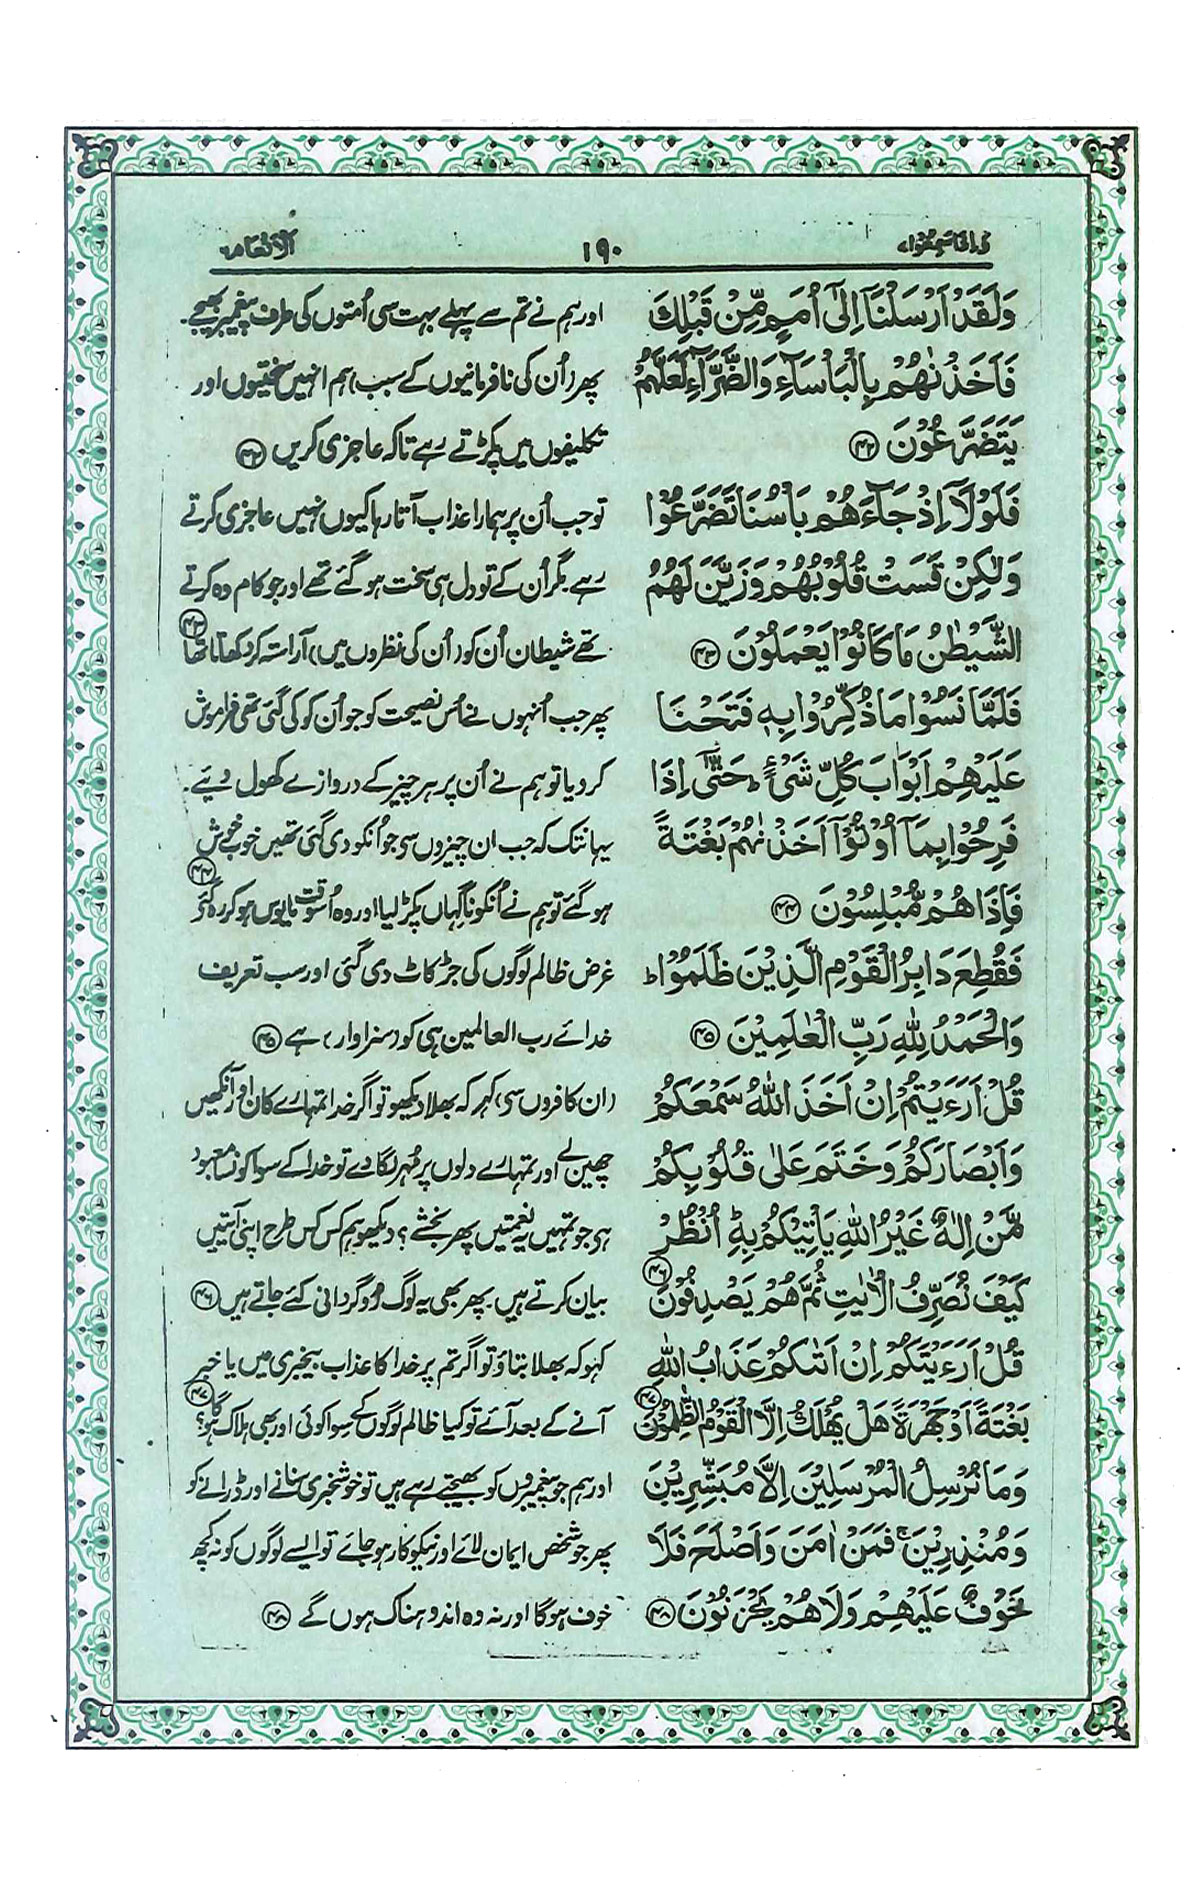 وَاِذَا سَمِعُوْا ۷
۱۹۰
اَلْاَنْعَام ۶
وَلَقَدْ اَرْسَلْنَاۤ اِلٰۤى اُمَمٍ مِّنْ قَبْلِكَ
فَاَخَذْنٰهُمْ بِالْبَاْسَآءِ وَالضَّرَّآءِ لَعَلَّهُمْ
يَتَضَرَّعُوْنَ ﴿۴۲﴾
فَلَوْلَاۤ اِذْ جَآءَهُمْ بَاْسُنَا تَضَرَّعُوْا
وَلٰكِنْ قَسَتْ قُلُوْبُهُمْ وَزَيَّنَ لَهُمُ
الشَّيْطٰنُ مَا كَانُوْا يَعْمَلُوْنَ ﴿۴۳﴾
فَلَمَّا نَسُوْا مَا ذُكِّرُوْا بِهٖ فَتَحْنَا
عَلَيْهِمْ اَبْوَابَ كُلِّ شَىْءٍ ؕ حَتّٰۤى اِذَا
فَرِحُوْا بِمَاۤ اُوْتُوْۤا اَخَذْنٰهُمْ بَغْتَةً
فَاِذَا هُمْ مُّبْلِسُوْنَ ﴿۴۴﴾
فَقُطِعَ دَابِرُ الْقَوْمِ الَّذِيْنَ ظَلَمُوْا ؕ
وَالْحَمْدُ لِلّٰهِ رَبِّ الْعٰلَمِيْنَ ﴿۴۵﴾
قُلْ اَرَءَيْتُمْ اِنْ اَخَذَ اللّٰهُ سَمْعَكُمْ
وَاَبْصَارَكُمْ وَخَتَمَ عَلٰى قُلُوْبِكُمْ
مَّنْ اِلٰهٌ غَيْرُ اللّٰهِ يَاْتِيْكُمْ بِهٖ ؕ اُنْظُرْ
كَيْفَ نُصَرِّفُ الْاٰيٰتِ ثُمَّ هُمْ يَصْدِفُوْنَ ﴿۴۶﴾
قُلْ اَرَءَيْتَكُمْ اِنْ اَتٰىكُمْ عَذَابُ اللّٰهِ
بَغْتَةً اَوْ جَهْرَةً هَلْ يُهْلَكُ اِلَّا الْقَوْمُ الظّٰلِمُوْنَ ﴿۴۷﴾
وَمَا نُرْسِلُ الْمُرْسَلِيْنَ اِلَّا مُبَشِّرِيْنَ
وَمُنْذِرِيْنَ ۚ فَمَنْ اٰمَنَ وَاَصْلَحَ فَلَا
خَوْفٌ عَلَيْهِمْ وَلَا هُمْ يَحْزَنُوْنَ ﴿۴۸﴾
اور ہم نے تم سے پہلے بہت سی اُمتوں کی طرف پیغمبر بھیجے۔
پھر (اُن کی نافرمانیوں کے سبب) ہم انہیں سختیوں اور
تکلیفوں میں پکڑتے رہے تاکہ عاجزی کریں ﴿۴۲﴾
تو جب اُن پر ہمارا عذاب آتا رہا کیوں نہیں عاجزی کرتے
رہے۔ مگر اُن کے تو دل ہی سخت ہو گئے تھے اور جو کام وہ کرتے
تھے شیطان اُن کو (اُن کی نظروں میں) آراستہ کر دکھاتا تھا ﴿۴۳﴾
پھر جب اُنہوں نے اُس نصیحت کو جو اُن کو کی گئی تھی فراموش
کر دیا تو ہم نے اُن پر ہر چیز کے دروازے کھول دئیے۔
یہانتک کہ جب ان چیزوں سی جو اُنکو دی گئی تھیں خوب خوش
ہو گئے تو ہم نے اُنکو ناگہاں پکڑ لیا اور وہ اُسوقت مایوس ہو کر رہ گئے ﴿۴۴﴾
غرض ظالم لوگوں کی جڑ کاٹ دی گئی اور سب تعریف
خدائے رب العالمین ہی کو (سزاوار) ہے ﴿۴۵﴾
(ان کافروں سی) کہو کہ بھلا دیکھو تو اگر خدا تمہارے کان اور آنکھیں
چھین لے اور تمہارے دلوں پر مُہر لگا دے تو خدا کے سوا کونسا معبود
ہی جو تمہیں یہ نعمتیں پھر بخشے؟ دیکھو ہم کس کس طرح اپنی آیتیں
بیان کرتے ہیں۔ پھر بھی یہ لوگ رُو گردانی کئے جاتے ہیں ﴿۴۶﴾
کہو کہ بھلا بتاؤ تو اگر تم پر خدا کا عذاب بیخبری میں یا خبر
آنے کے بعد آئے تو کیا ظالم لوگوں کے سوا کوئی اور بھی ہلاک ہوگا؟ ﴿۴۷﴾
اور ہم جو پیغمبروں کو بھیجتے رہے ہیں تو خوشخبری سنانے اور ڈرانے کو
پھر جو شخص ایمان لائے اور نیکوکار ہو جائے تو ایسے لوگوں کو نہ کچھ
خوف ہوگا اور نہ وہ اندوہناک ہوں گے ﴿۴۸﴾